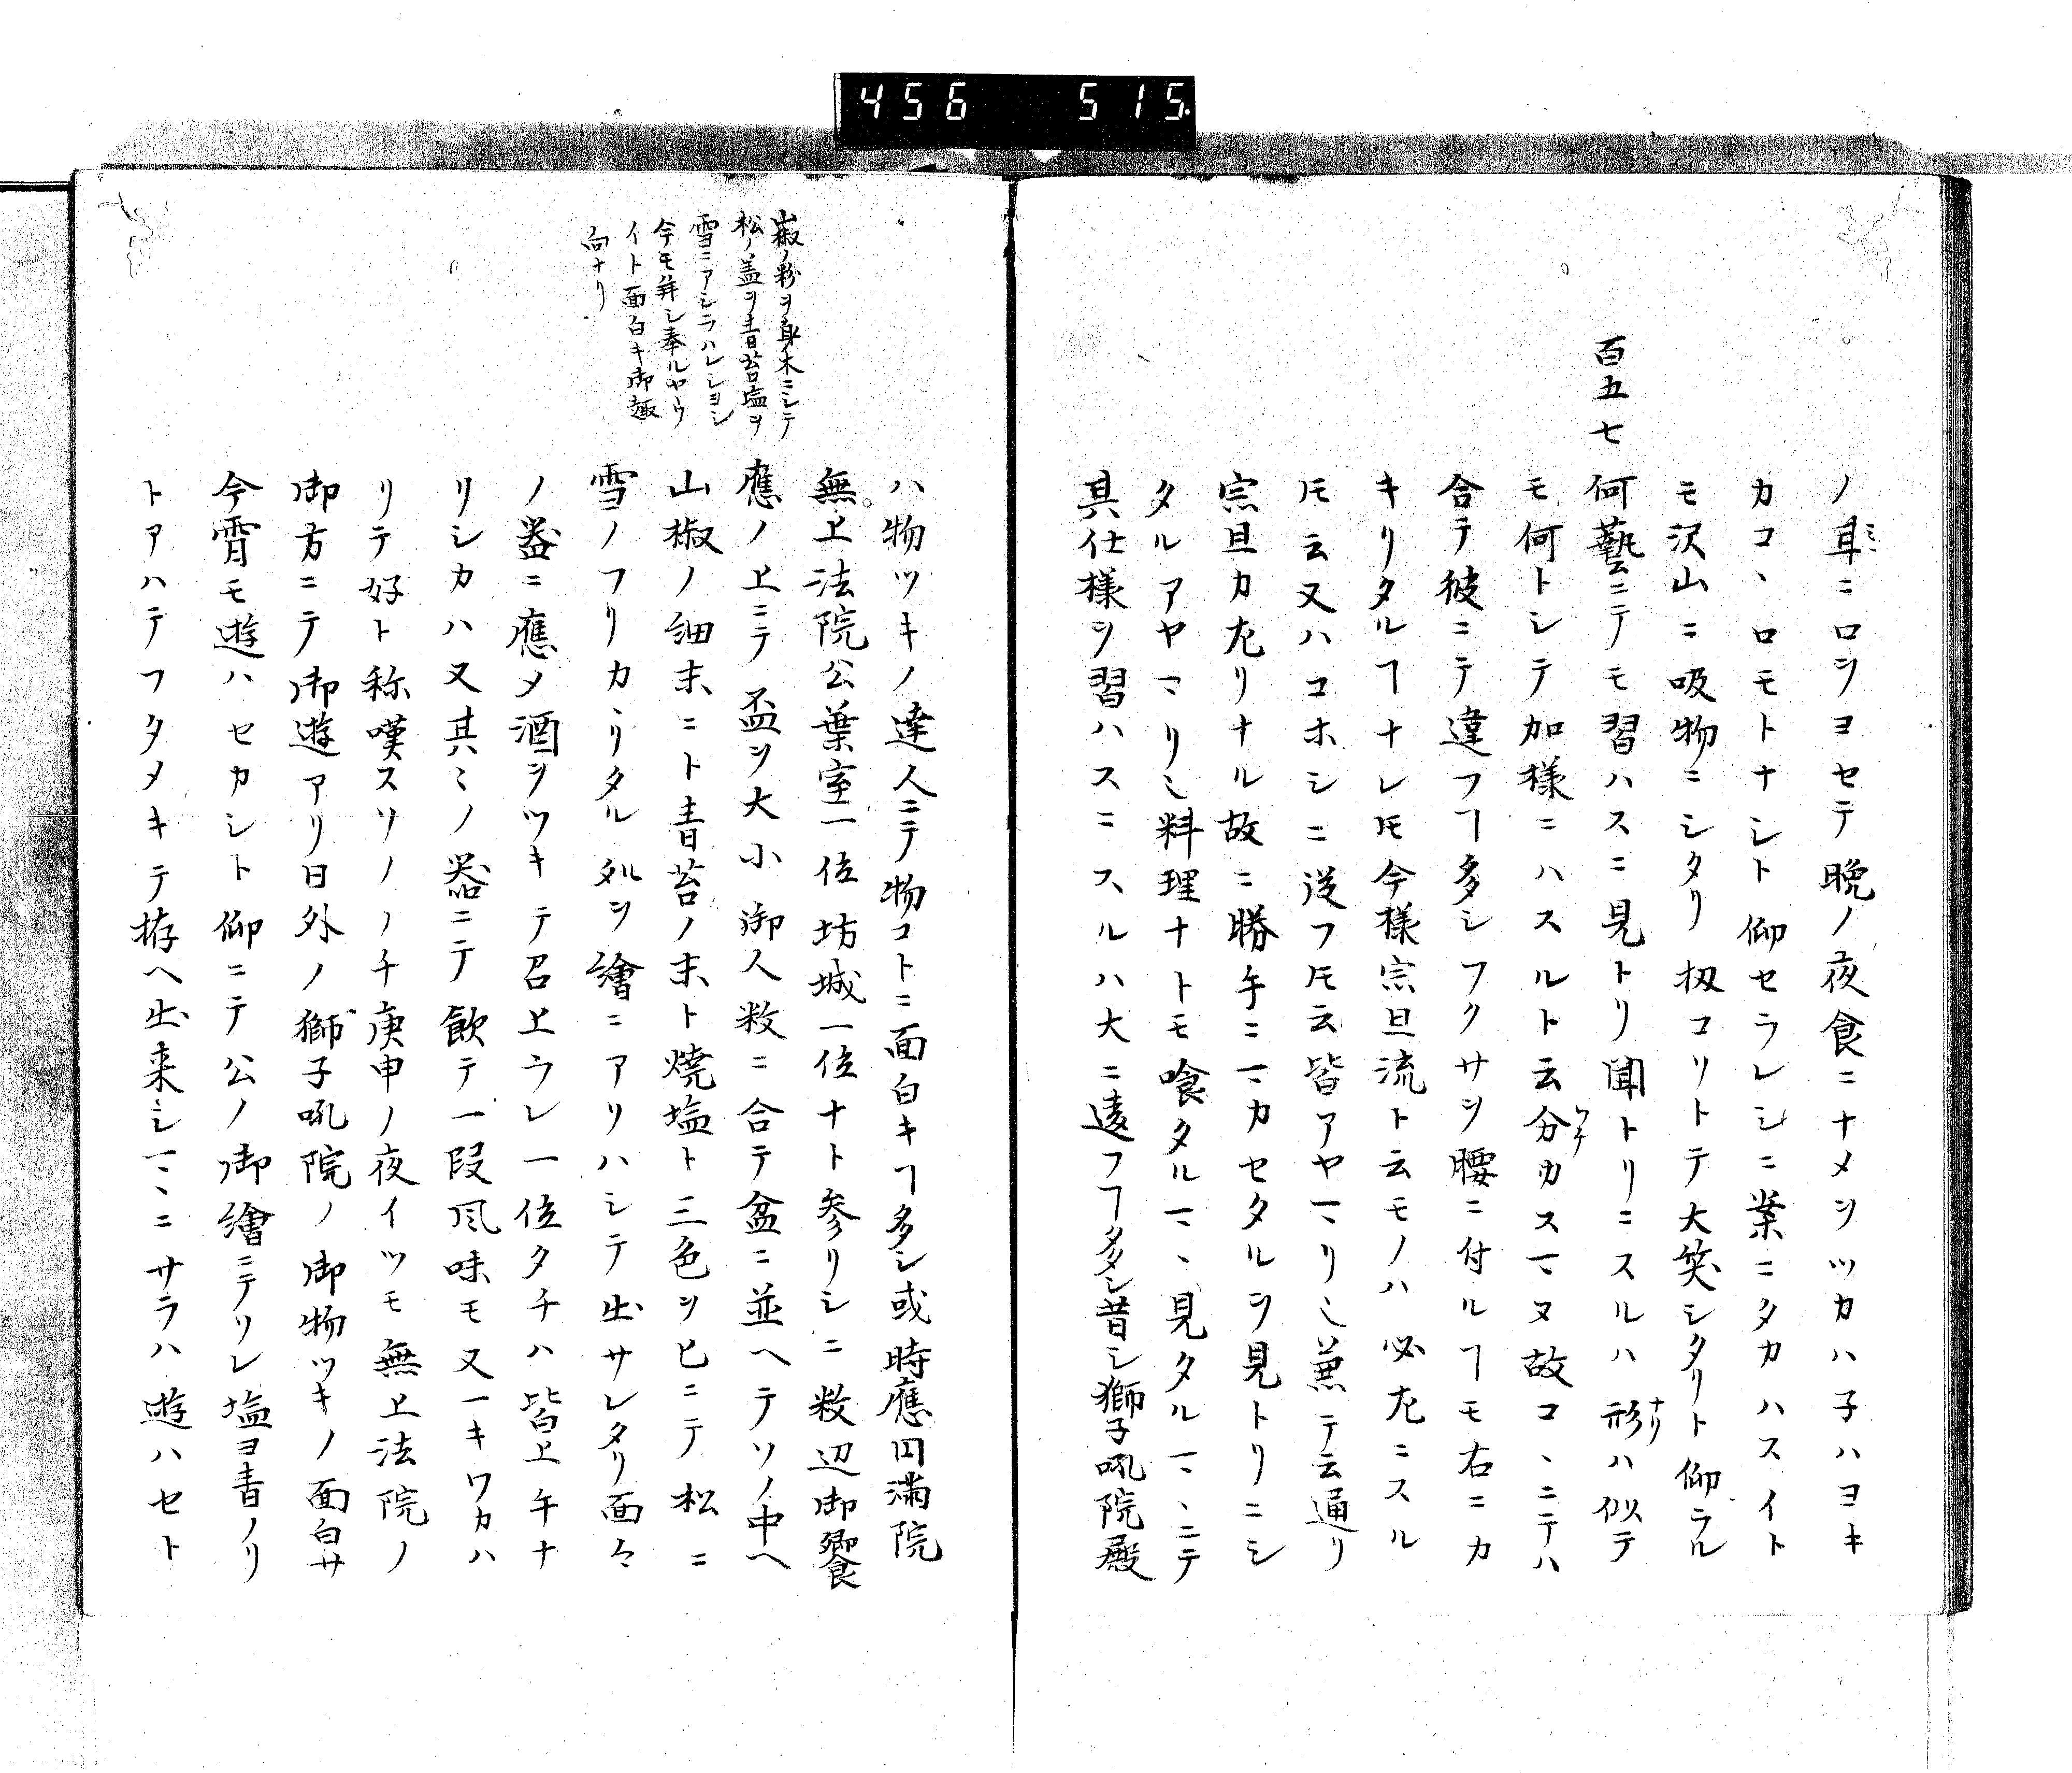 456 515
ノ耳ニロヲヨセテ晩ノ夜食ニナメンツカハ子ハヨキ
カコヽロモトナシト仰セラレシニ案ニタカハスイト
モ沢山ニ吸物ニシタリ扨コソトテ大笑シタリト仰ラル
百五七
何藝ニテモ習ハスニ見トリ聞トリニスルハ形ハ似テ
モ何トシテ加様ニハスルト云分カスマヌ故コヽニテハ
合テ彼ニテ違フヿ多シフクサヲ腰ニ付ルヿモ右ニカ
キリタルヿナレ𪜈今様宗旦流ト云モノハ必左ニスル
𪜈云又ハコホシニ従フ𪜈云皆アヤマリ也兼テ云通リ
宗旦カ左リナル故ニ勝手ニマカセタルヲ見トリニシ
タルアヤマリ也料理ナトモ喰タルマヽ見タルマヽニテ
其仕様ヲ習ハスニスルハ大ニ違フヿ多シ昔シ獅子吼院殿
ハ物ツキノ達人ニテ物コトニ面白キヿ多シ或時應円満院
無上法院公葉室一位坊城一位ナト参リシニ数辺御饗
應ノ上ニテ盃ヲ大小御人数ニ合テ盆ニ並ヘテソノ中ヘ
山椒ノ細末ニト青苔ノ末ト焼塩ト三色ヲヒニテ松ニ
雪ノフリカヽリタル処ヲ繪ニアリハシテ出サレタリ面々
ノ器ニ應メ酒ヲツキテ召上ラレ一位タチハ皆上手ナ
リシカハ又其ミノ器ニテ飲テ一段風味モ又一キワカハ
リテ好ト称嘆スソノノチ庚申ノ夜イツモ無上法院ノ
御方ニテ御遊アリ日外ノ獅子吼院ノ御物ツキノ面白サ
今霄モ遊ハセカシト仰ニテ公ノ御繪ニテソレ塩ヨ青ノリ
トアハテフタメキテ拵ヘ出来シマヽニサラハ遊ハセト
山椒ノ粉ヲ身木ニシテ
松ノ盖ヲ青苔塩ヲ
雪ニアシラハレシヨシ
今モ拜シ奉ルヤウ
イト面白キ御趣
向ナリ